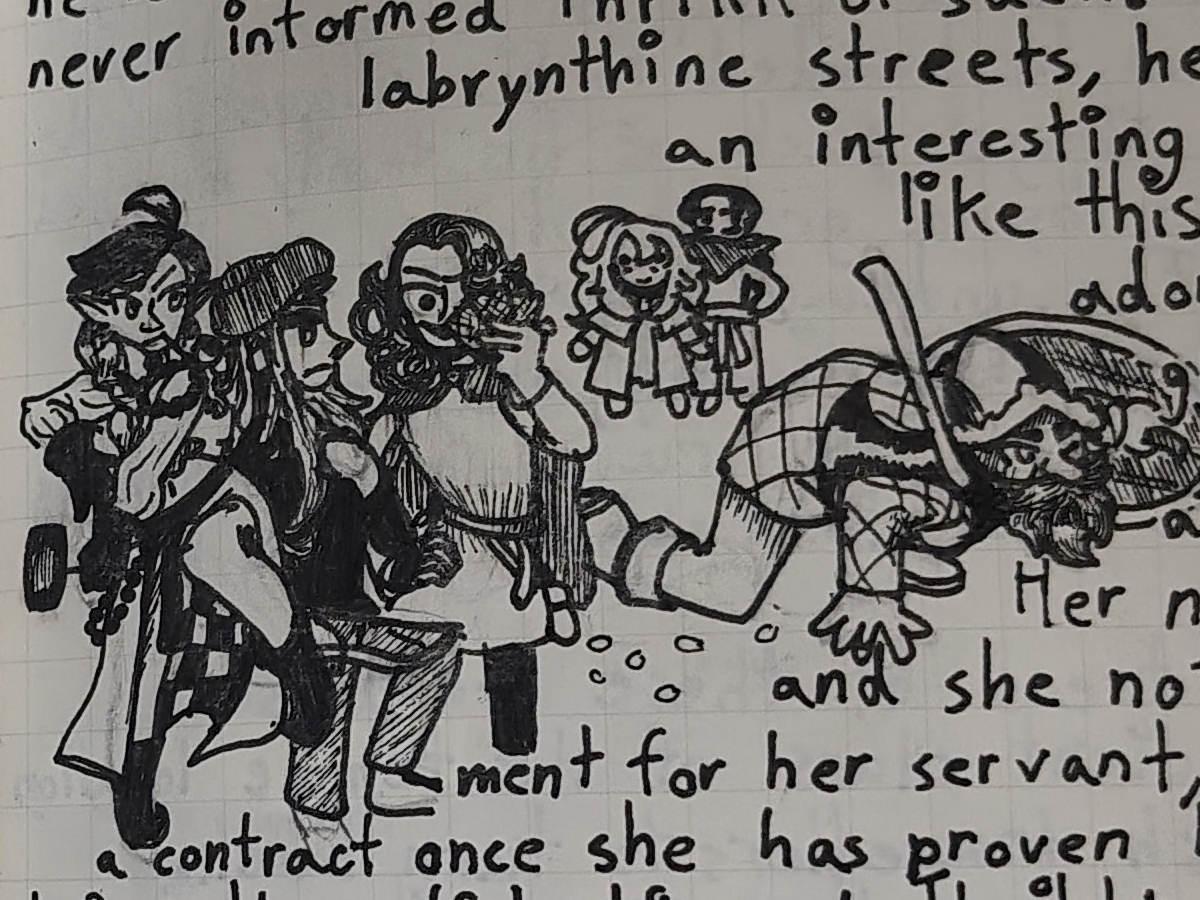 never informed
labrynthine streets, he
an interesting
like this
ado
a
Her n
and she no
ment for her servant,
a contract once she has proven